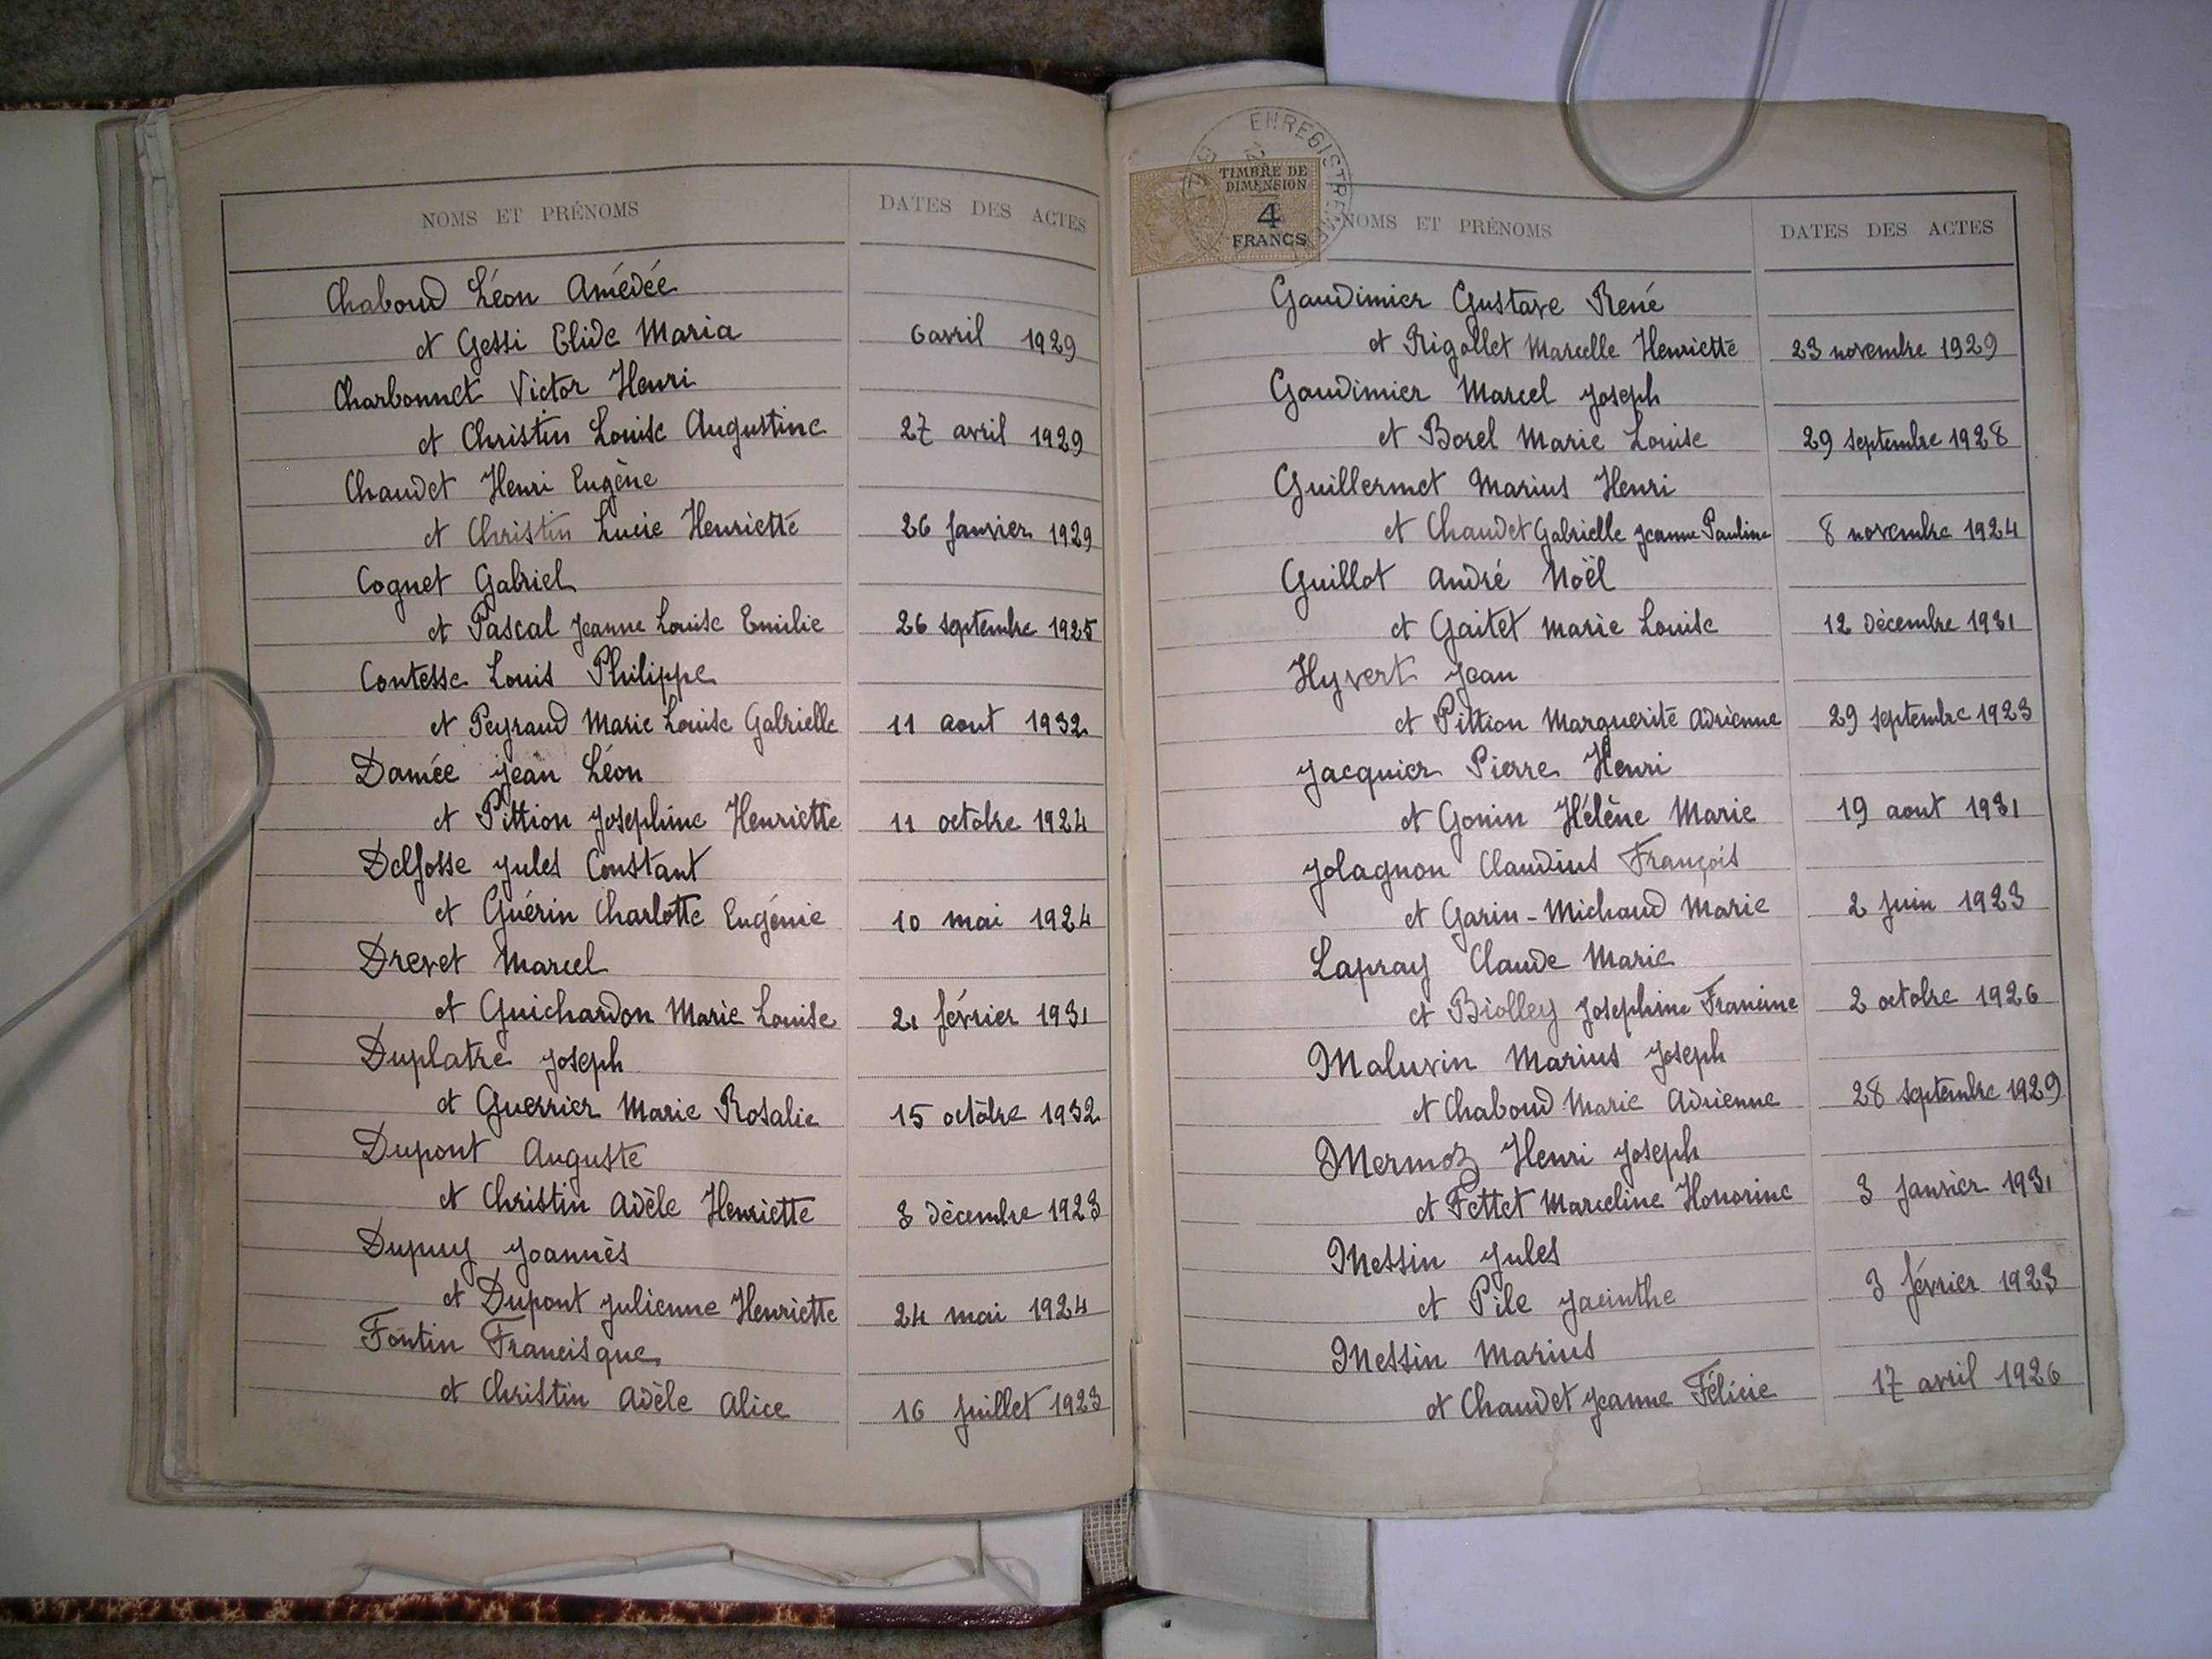 NOMS ET PRÉNOMS DATES DES ACTES
Chaboud Léon Amédée
et Gessi Elide Maria 6 avril 1929
Charbonnet Victor Henri
et Christin Louise Augustine 27 avril 1929
Chaudet Henri Eugène
et Christin Lucie Henriette 26 janvier 1929
Cognet Gabriel
et Pascal Jeanne Louise Emilie 26 septembre 1925
Contesse Louis Philippe
et Peyraud Marie Louise Gabrielle 11 aout 1932
Damée Jean Léon
et Pittion Josephine Henriette 11 octobre 1924
Delfosse Jules Constant
et Guérin Charlotte Eugénie 10 mai 1924
Drevet Marcel
et Guichardon Marie Louise 21 février 1931
Duplatre Joseph
et Guerrier Marie Rosalie 15 octobre 1932
Dupont Auguste
et Christin Adèle Henriette 8 décembre 1923
Dupuy Joannès
et Dupont Julienne Henriette 24 mai 1924
Fontin Francisque
et Christin Adèle Alice 16 juillet 1923
ENREGISTREMENT
TIMBRE DE
DIMENSION
4
FRANCS
NOMS ET PRÉNOMS DATES DES ACTES
Gaudimier Gustave René
et Rigollet Marcelle Henriette 23 novembre 1929
Gaudimier Marcel Joseph
et Borel Marie Louise 29 septembre 1928
Guillermet Marius Henri
et Chaudet Gabrielle Jeanne Pauline 8 novembre 1924
Guillot André Noël
et Gaitet Marie Louise 12 décembre 1931
Hyvert Jean
et Pittion Marguerite Adrienne 29 septembre 1923
Jacquier Pierre Henri
et Gonin Hélène Marie 19 aout 1931
Jolagnon Claudius François
et Garin-Michaud Marie 2 juin 1923
Lapray Claude Marie
et Biolley Josephine Francine 2 octobre 1926
Maluvin Marius Joseph
et Chaboud Marie Adrienne 28 septembre 1929
Mermoz Henri Joseph
et Fettet Marceline Honorine 3 janvier 1931
Messin Jules
et Pile Jacinthe 3 février 1923
Messin Marius
et Chaudet Jeanne Félicie 17 avril 1926